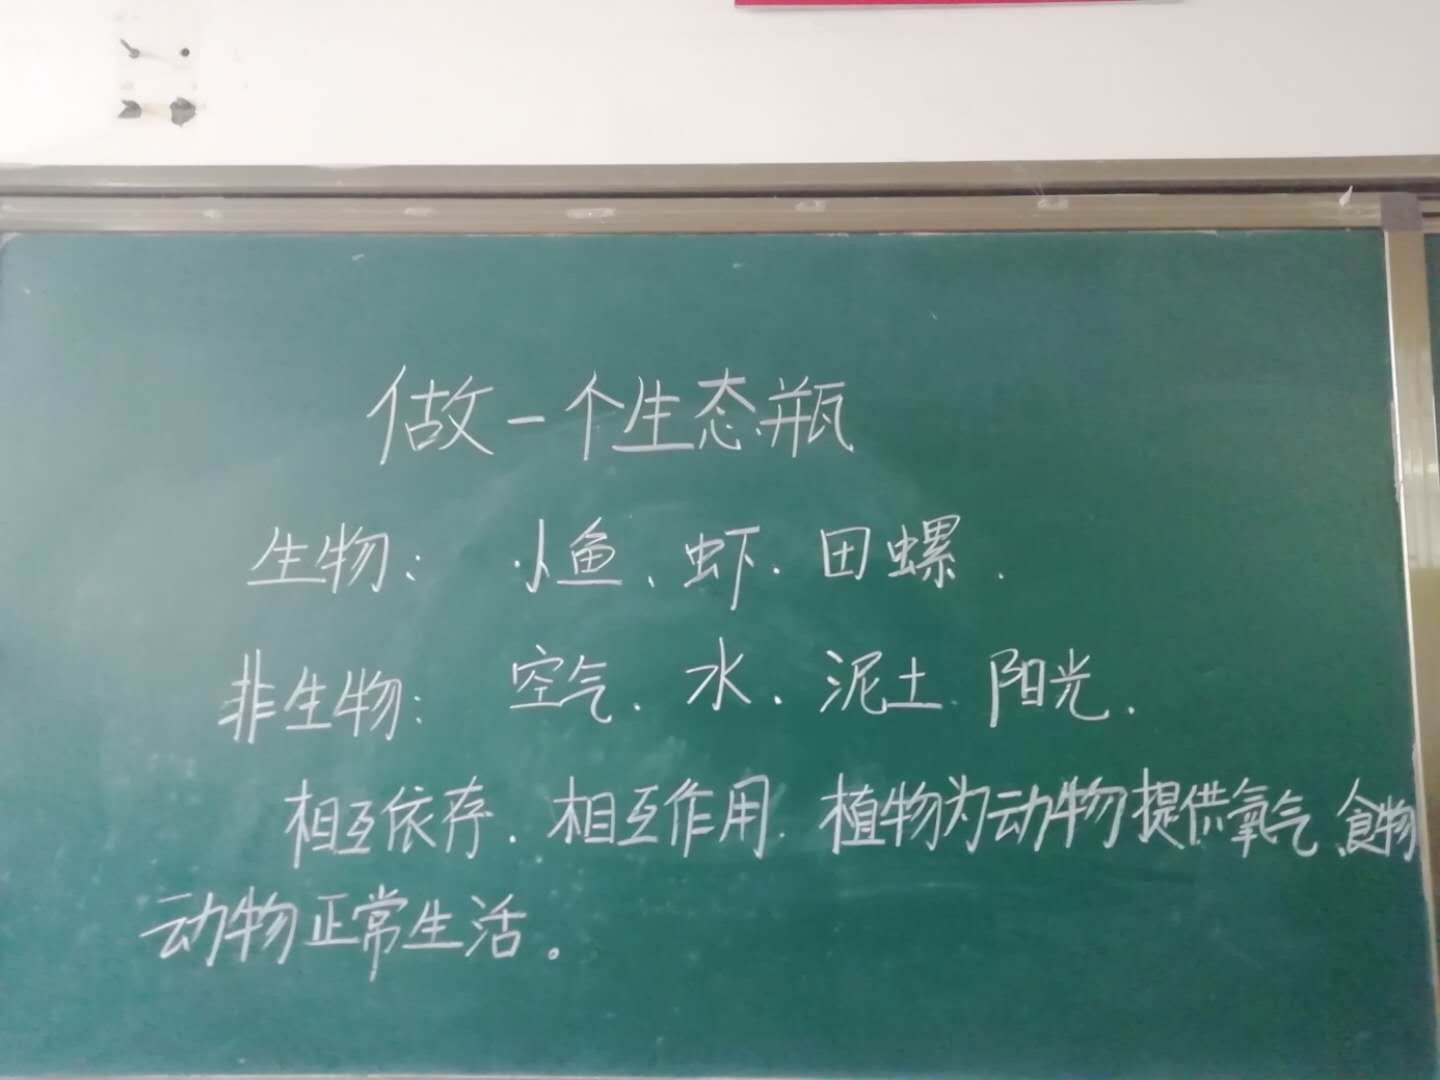 做一个生态瓶
生物：小鱼、虾、田螺.
非生物：空气、水、泥土、阳光.
相互依存、相互作用、植物为动物提供氧气、食物
动物正常生活。